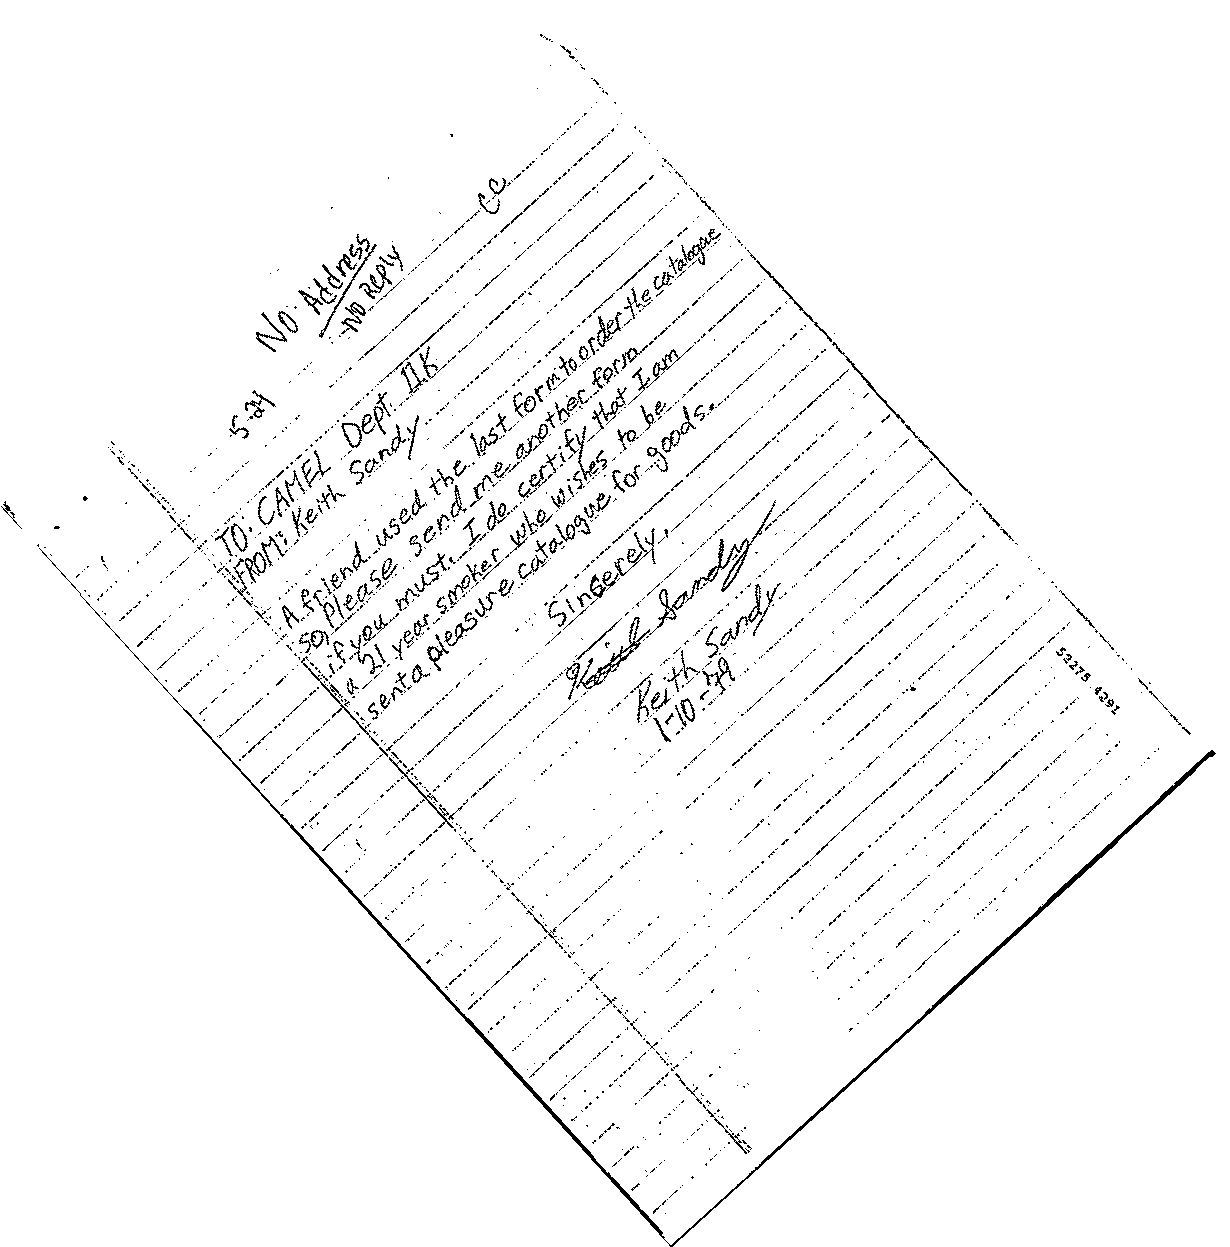 CC
No Address
-No Reply
5-24
TO: CAMEL Dept. IIK
FROM: Keith Sandy
A friend used the last form to order the catalogue
so, please send me another form
if you must. I do certify that I am
a 21 year smoker who wishes to be
sent a pleasure catalogue for goods.
Sincerely,
Keith Sandy
Keith Sandy
1-10-79
52275 4291